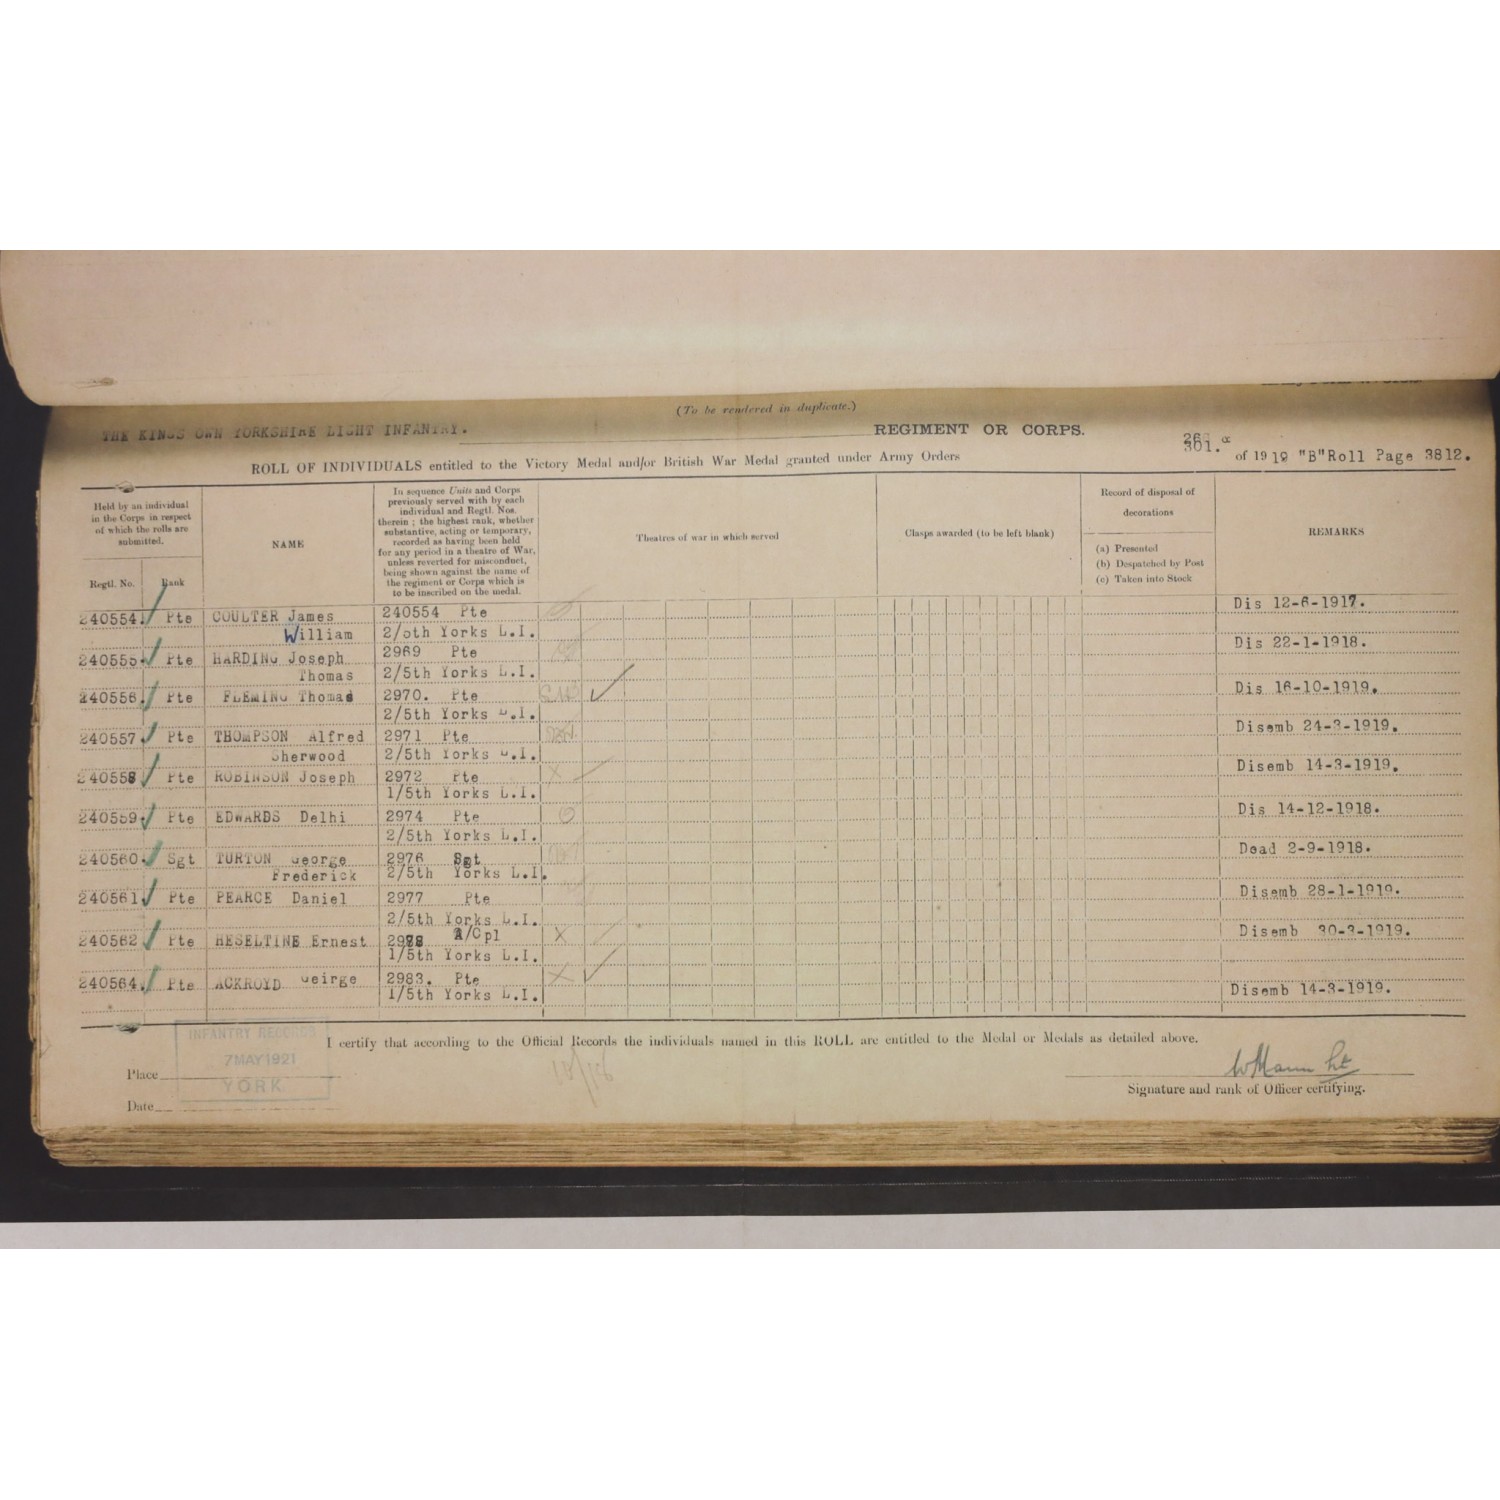 (To be rendered in duplicate.)
THE KINGS OWN YORKSHIRE LIGHT INFANTRY. REGIMENT OR CORPS.
ROLL OF INDIVIDUALS entitled to the Victory Medal and/or British War Medal granted under Army Orders 301. of 1919 "B"Roll Page 3812.
Held by an individual
in the Corps in respect
of which the rolls are
submitted.
Regtl. No. Rank
NAME
In sequence Units and Corps
previously served with by each
individual and Regtl. Nos.
therein ; the highest rank, whether
substantive, acting or temporary,
recorded as having been held
for any period in a theatre of War,
unless reverted for misconduct,
being shown against the name of
the regiment or Corps which is
to be inscribed on the medal.
Theatres of war in which served
Clasps awarded (to be left blank)
Record of disposal of
decorations
(a) Presented
(b) Despatched by Post
(c) Taken into Stock
REMARKS
240554. Pte COULTER James 240554 Pte Dis 12-6-1917.
William 2/5th Yorks L.I.
240555. Pte HARDING Joseph 2969 Pte Dis 22-1-1918.
Thomas 2/5th Yorks L.I.
240556. Pte FLEMING Thomas 2970. Pte Dis 16-10-1919.
2/5th Yorks L.I.
240557 Pte THOMPSON Alfred 2971 Pte Disemb 24-3-1919.
Sherwood 2/5th Yorks L.I.
240558 Pte ROBINSON Joseph 2972 Pte X Disemb 14-3-1919.
1/5th Yorks L.I.
240559. Pte EDWARDS Delhi 2974 Pte Dis 14-12-1918.
2/5th Yorks L.I.
240560. Sgt TURTON George 2976 Sgt Dead 2-9-1918.
Frederick 2/5th Yorks L.I.
240561 Pte PEARCE Daniel 2977 Pte Disemb 28-1-1919.
2/5th Yorks L.I.
240562 Pte HESELTINE Ernest 2978 A/Cpl X Disemb 30-3-1919.
1/5th Yorks L.I.
240564. Pte ACKROYD Geirge 2983. Pte X Disemb 14-3-1919.
1/5th Yorks L.I.
I certify that according to the Official Records the individuals named in this ROLL are entitled to the Medal or Medals as detailed above.
INFANTRY RECORDS
7 MAY 1921
YORK
Place
Date
W Mann Lt
Signature and rank of Officer certifying.